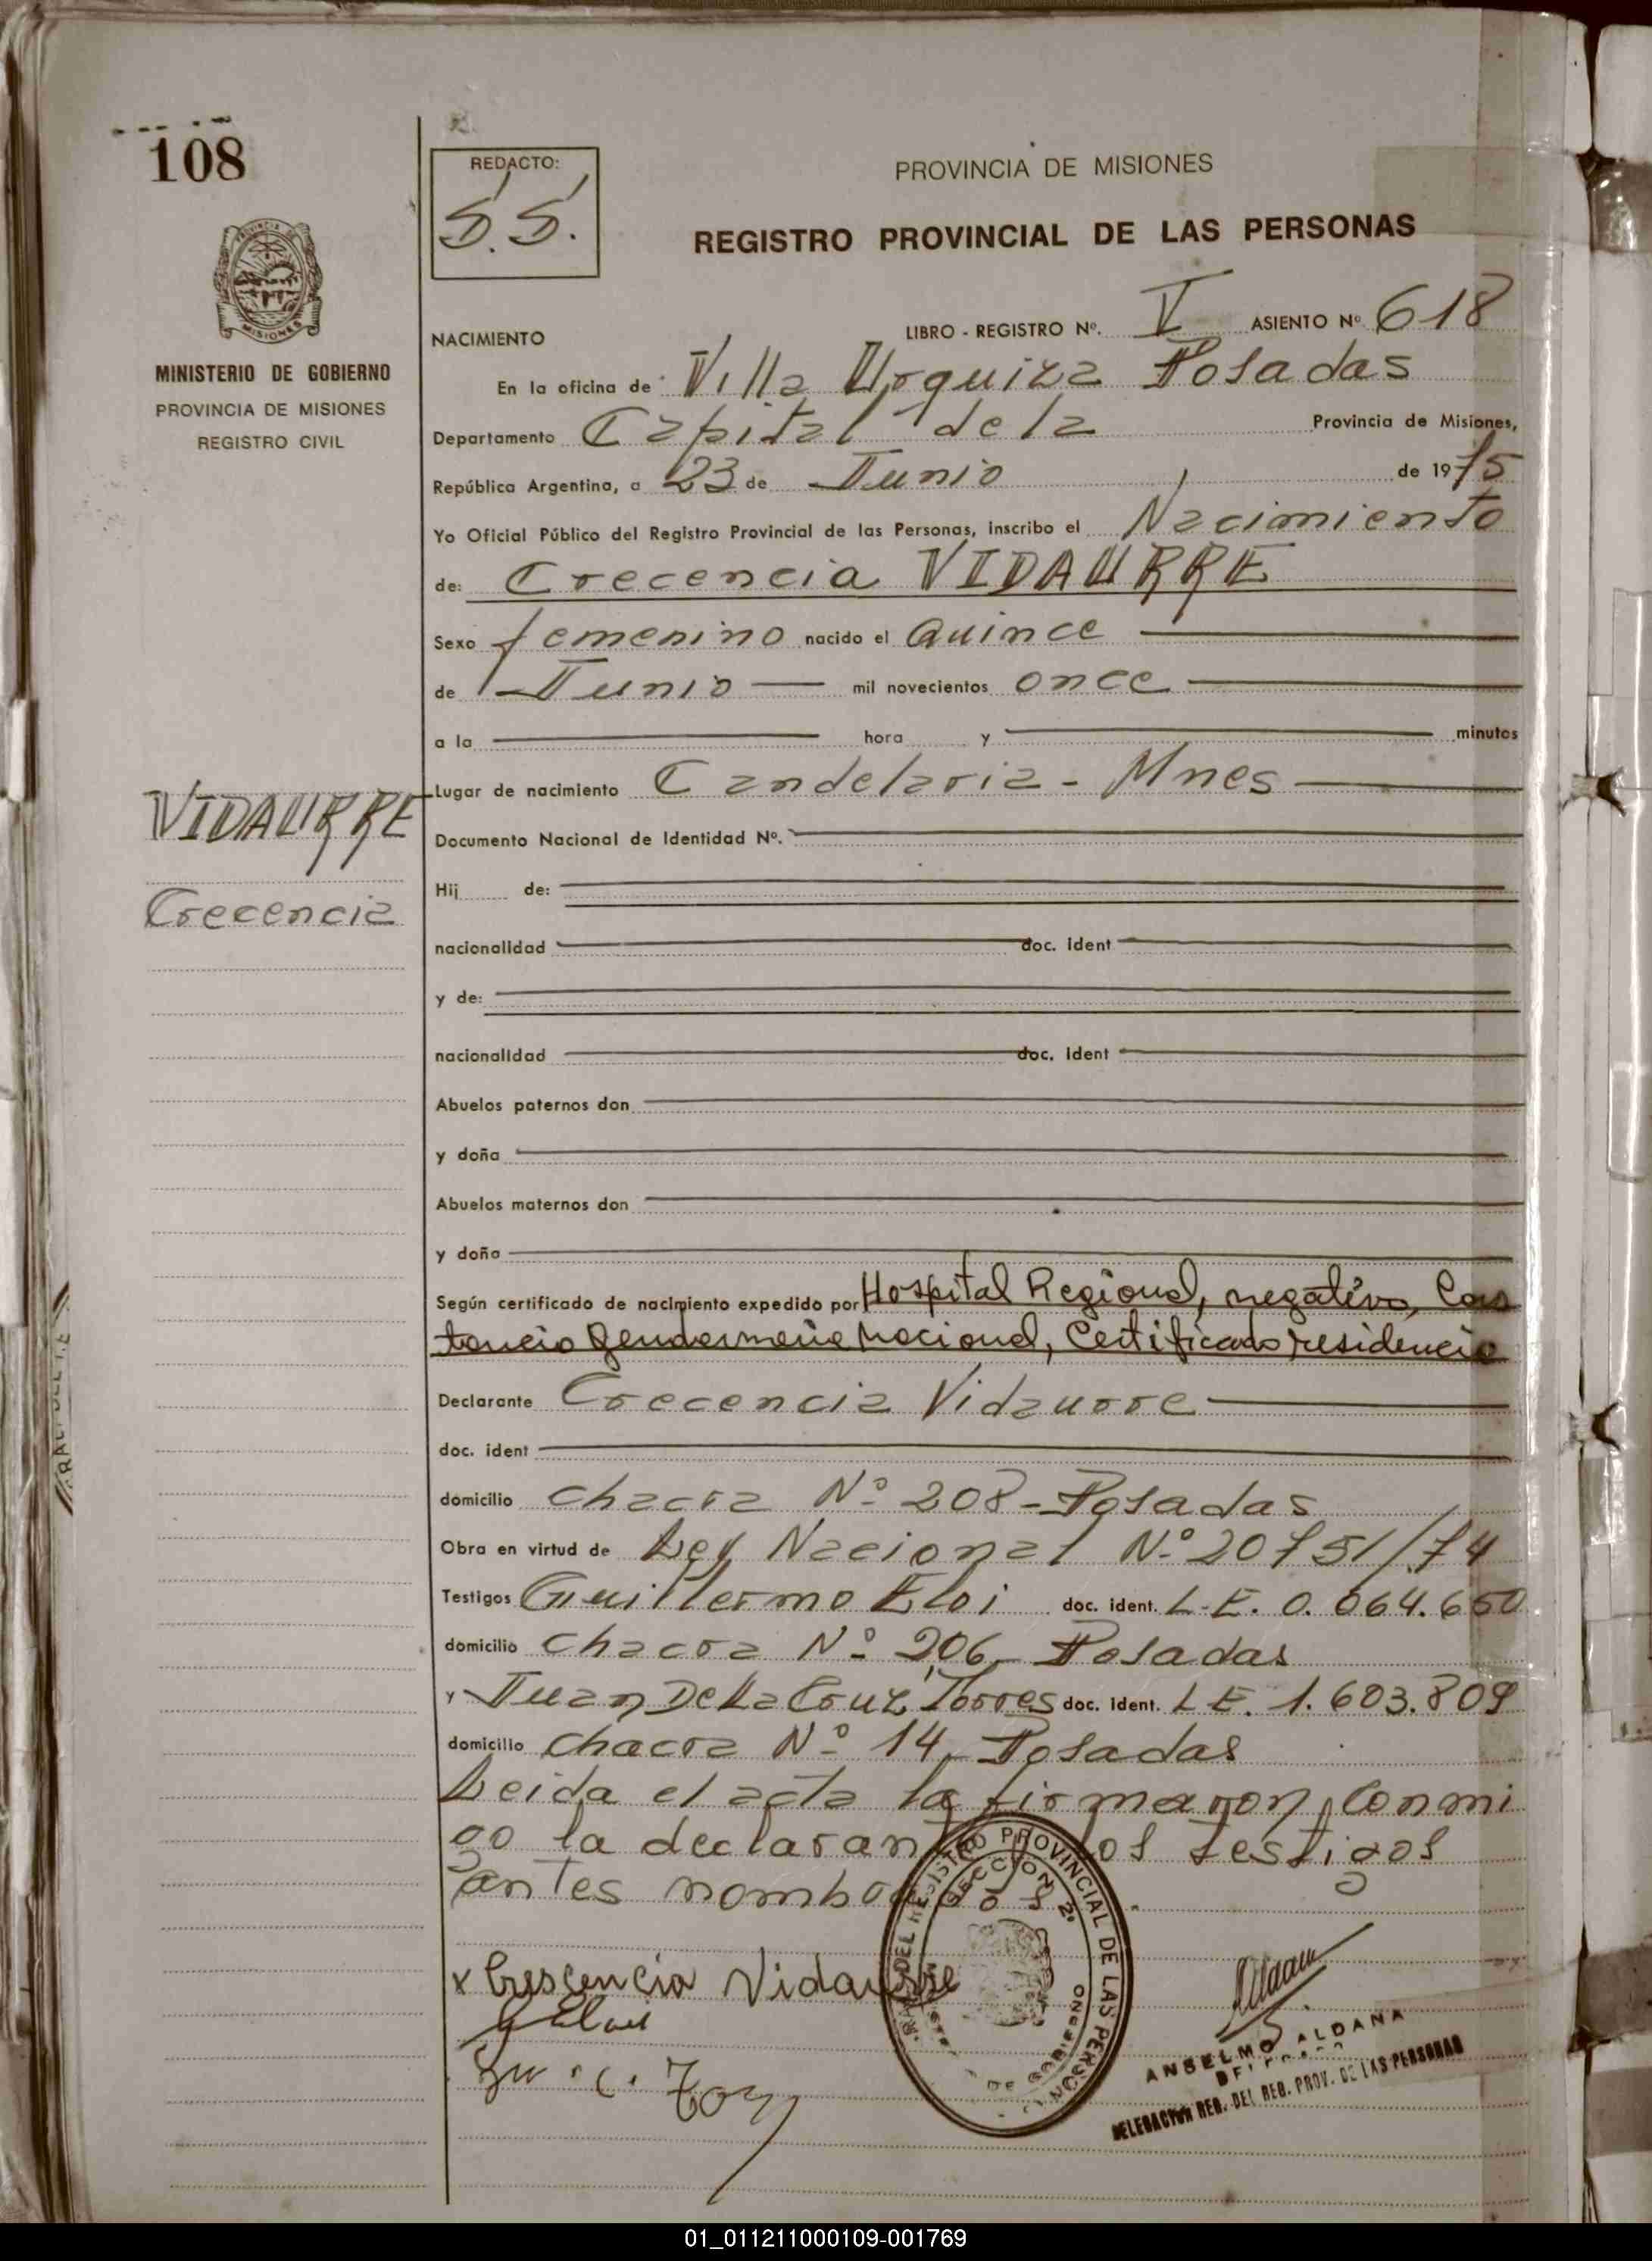 108
REDACTO:
S.S.
PROVINCIA DE MISIONES
REGISTRO PROVINCIAL DE LAS PERSONAS
MISIONES
MINISTERIO DE GOBIERNO
PROVINCIA DE MISIONES
REGISTRO CIVIL
NACIMIENTO
LIBRO - REGISTRO Nº. V ASIENTO Nº 618
En la oficina de Villa Urquiza Posadas
Departamento Capital de la Provincia de Misiones,
República Argentina, a 23 de Junio de 1975
Yo Oficial Público del Registro Provincial de las Personas, inscribo el Nacimiento
de: Crecencia VIDAURRE
Sexo femenino nacido el Quince
de Junio mil novecientos once
a la hora y minutos
VIDAURRE
Crecencia
Lugar de nacimiento Candelaria - Mnes
Documento Nacional de Identidad Nº.
Hij de:
nacionalidad doc. ident
y de:
nacionalidad doc. ident
Abuelos paternos don
y doña
Abuelos maternos don
y doña
Según certificado de nacimiento expedido por Hospital Regional, negativo, Cons
tancia Gendarmeria Nacional, Certificado residencia
Declarante Crecencia Vidaurre
doc. ident
domicilio Chacra Nº 208 - Posadas
Obra en virtud de Ley Nacional Nº 20751/74
Testigos Guillermo Eloi doc. ident. L.E. 0.064.650
domicilio Chacra Nº 206 - Posadas
y Juan De La Cruz Torres doc. ident. L.E. 1.603.809
domicilio Chacra Nº 14 - Posadas
Leida el acta la firmaron conmi
go la declarante los testigos
antes nombrados.
x Crescencia Vidaurre
G Eloi
DEL REGISTRO PROVINCIAL DE LAS PERSON
SECCION 2ª
DE GOBIERNO
ANSELMO ALDANA
DELEGACION REG. DEL REG. PROV. DE LAS PERSONAS
01_011211000109-001769